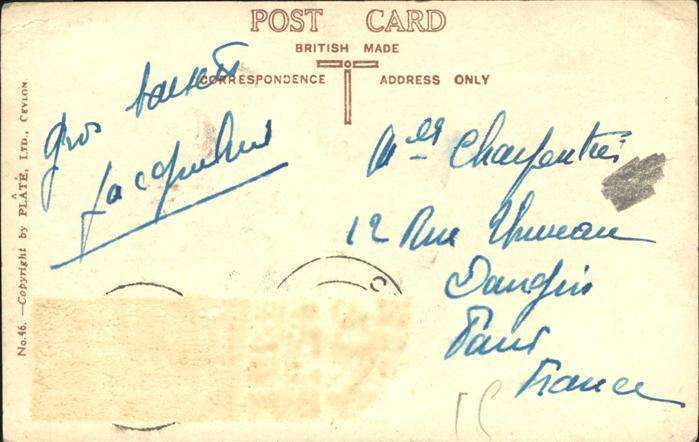 POST CARD
BRITISH MADE
CORRESPONDENCE
ADDRESS ONLY
Gros baisers
Jacqueline
Mlles Charpentier
12 Rue
Paris
France
No.46. —Copyright by PLÂTÉ, LTD., CEYLON
C